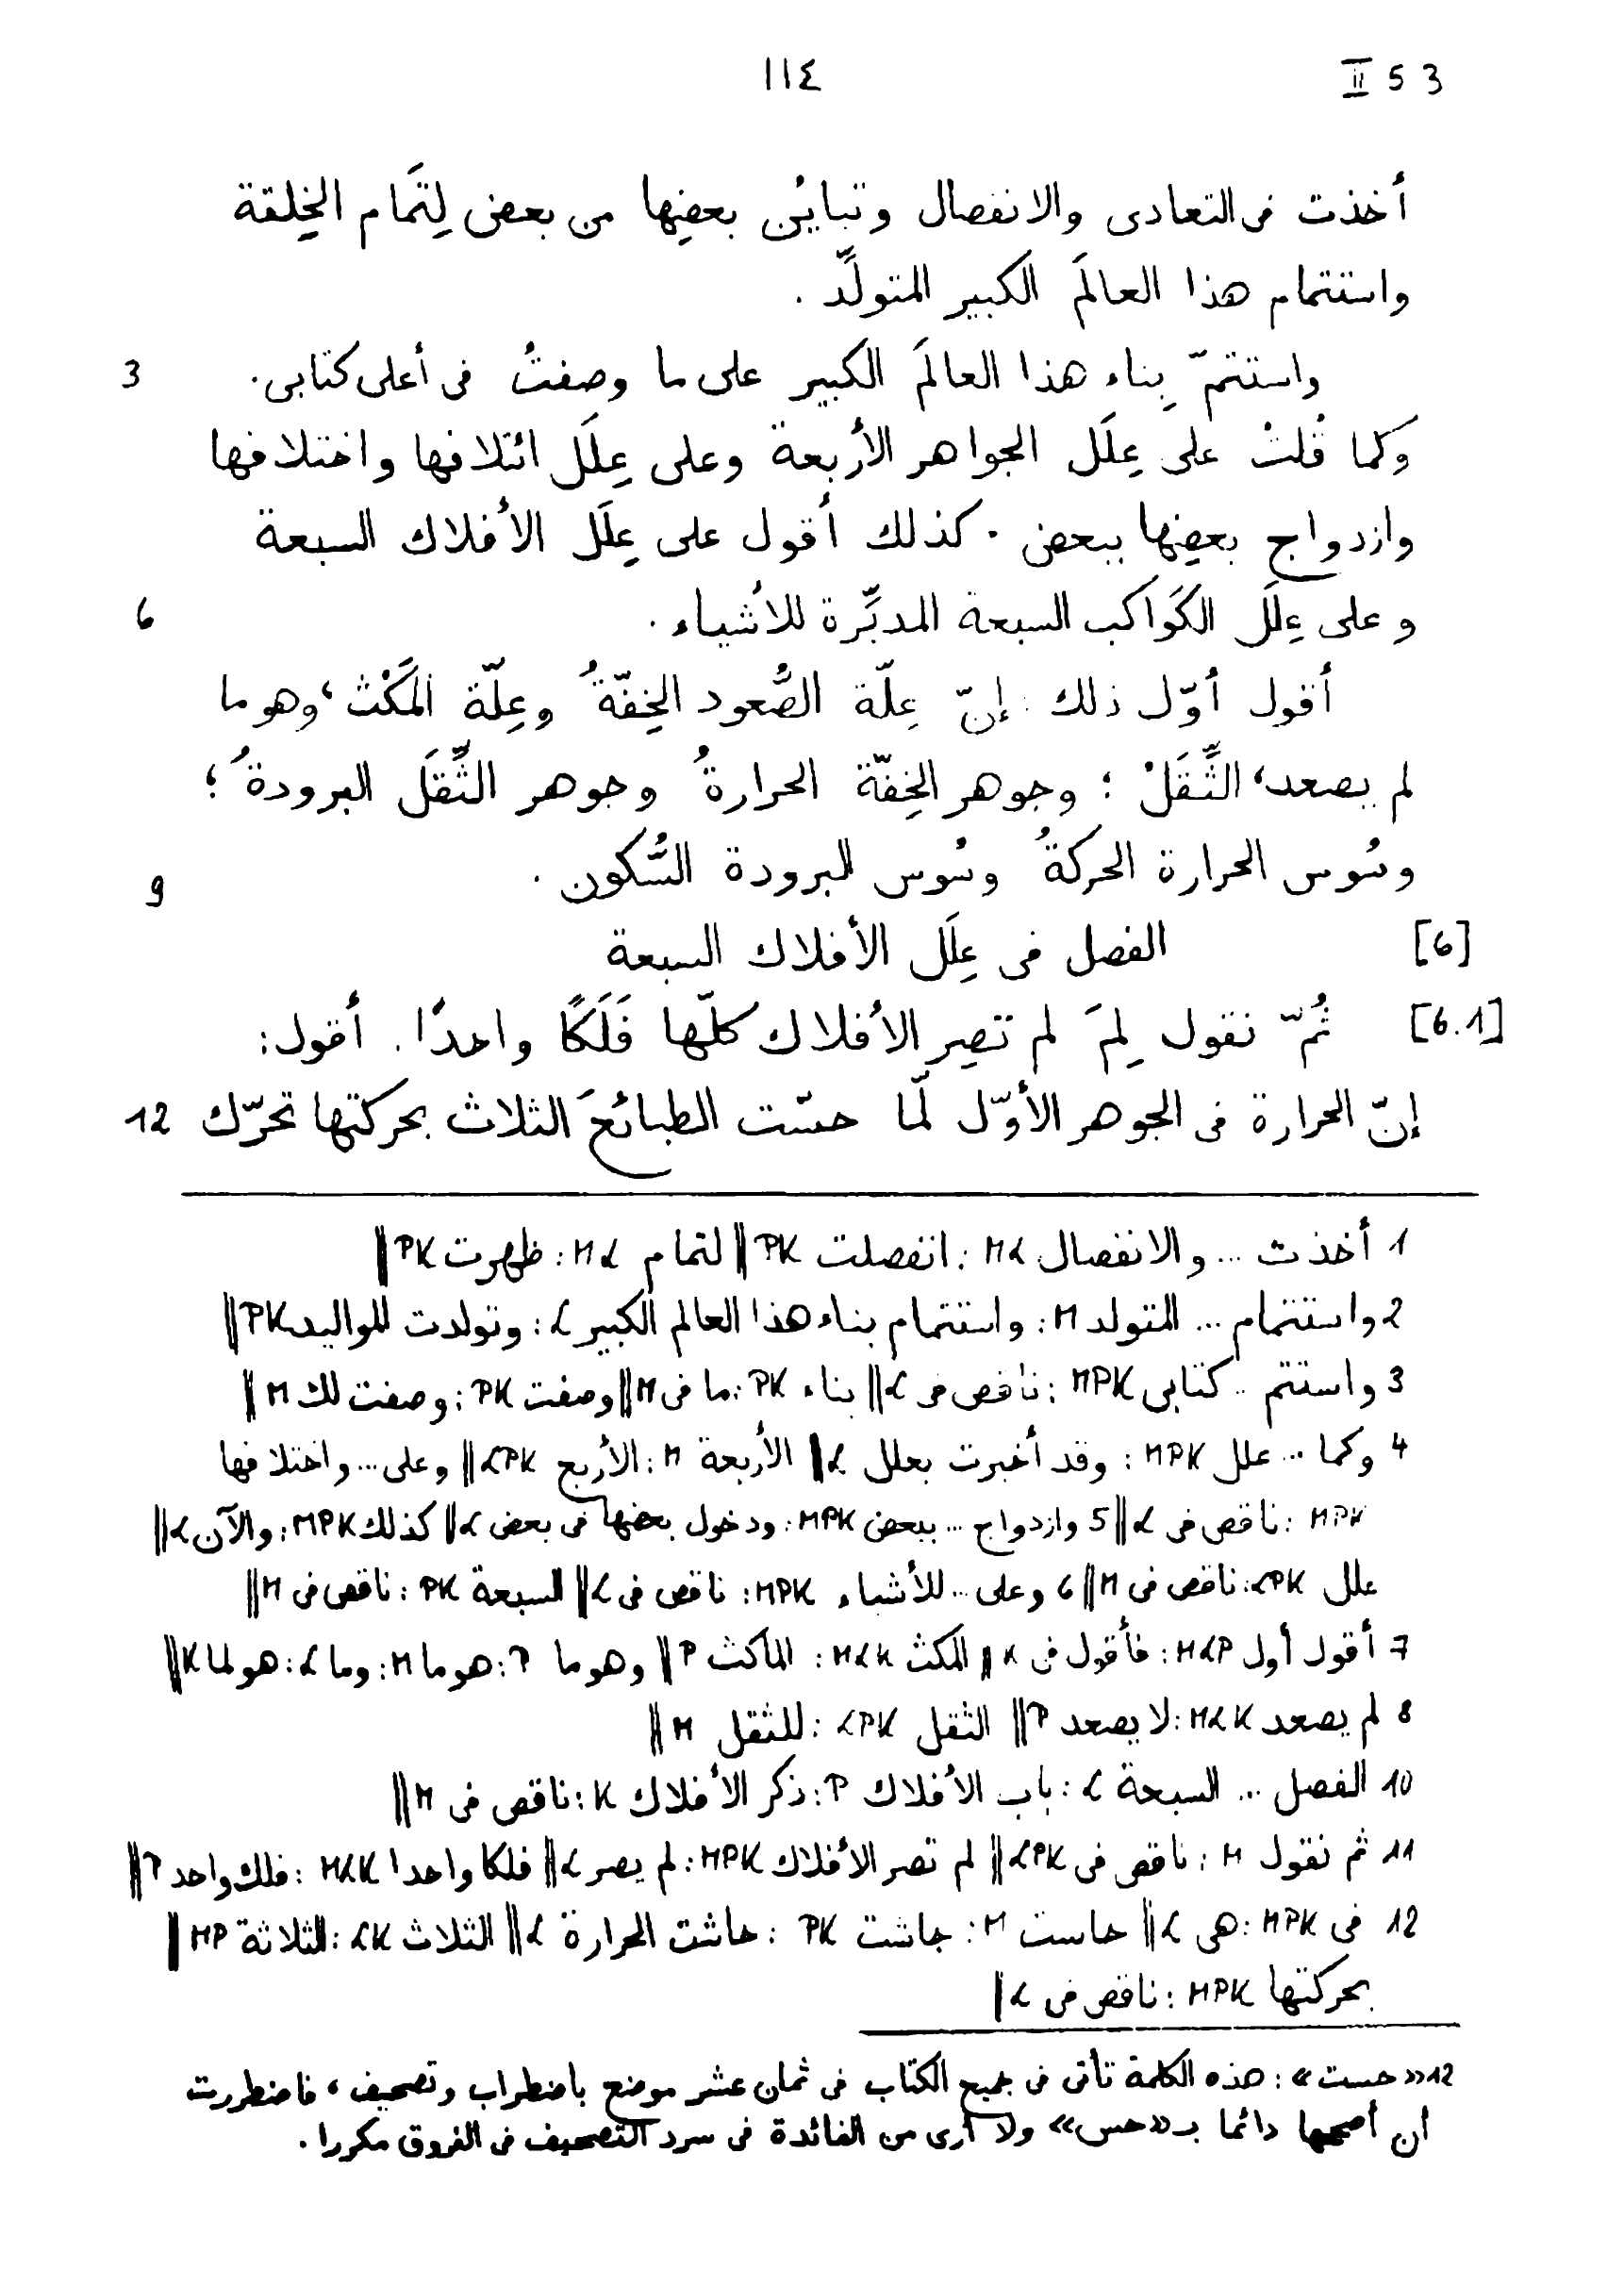 II 5 3
١١٤
أخذت فى التعادى والانفصال وتبايُن بعضِها من بعض لِتَمام الخِلقة
واستتمام هذا العالَم الكبير المتولِّد .
واستتمّ بِناء هذا العالَم الكبير على ما وصفتُ فى أعلى كتابى. 3
وكما قُلتُ على عِلَل الجواهر الأربعة وعلى عِلَل ائتلافها واختلافها
وازدواج بعضِها ببعض . كذلك أقول على عِلَل الأفلاك السبعة
وعلى عِلَل الكَواكب السبعة المدبِّرة للأشياء . 6
أقول أوّل ذلك : إنّ عِلّة الصُّعود الخِفّةُ وعِلّة المَكْث ، وهو ما
لم يصعد، الثِّقَلُ ؛ وجوهر الخِفّة الحرارةُ وجوهر الثِّقَل البرودةُ ؛
وسُوس الحرارة الحركةُ وسُوس البرودة السُّكون . 9
[6] الفصل فى عِلَل الأفلاك السبعة
[6.1] ثُمّ نقول لِمَ لم تصِر الأفلاك كلّها فَلَكًا واحدًا . أقول:
إنّ الحرارة فى الجوهر الأوّل لمّا حسّت الطبائعَ الثلاث بحركتها تحرّك 12
1 أخذت ... والانفصال ML : انفصلت PK || لتمام ML : ظهرت PK ||
2 واستتمام ... المتولد M : واستتمام بناء هذا العالم الكبير L : وتولدت المواليد PK ||
3 واستتم .. كتابى MPK : ناقص فى L || بناء PK : ما فى M || وصفت PK : وصفت لك M ||
4 وكما ... علل MPK : وقد أخبرت بعلل L || الأربعة M : الأربع LPK || وعلى ... واختلافها
MPK : ناقص فى L || 5 وازدواج ... ببعض MPK : ودخول بعضها فى بعض L || كذلك MPK : والآن L ||
علل LPK : ناقص فى M || 6 وعلى ... للأشياء MPK : ناقص فى L || السبعة PK : ناقص فى M ||
7 أقول أول MLP : فأقول فى K || المكث MLK : الماكث P || وهو ما P : هو ما M : وما L : هو لما K ||
8 لم يصعد MLK : لا يصعد P || الثقل LPK : للثقل M ||
10 الفصل ... السبعة L : باب الأفلاك P : ذكر الأفلاك K : ناقص فى M ||
11 ثم نقول M : ناقص فى LPK || لم تصر الأفلاك MPK : لم يصر L || فلكا واحدا MLK : فلك واحد P ||
12 فى MPK : هى L || حاست M : جاشت PK : حاشت الحرارة L || الثلاث LK : الثلاثة MP ||
بحركتها MPK : ناقص فى L ||
12 «حست» : هذه الكلمة تأتى فى جميع الكتاب فى ثمان عشر موضع باضطراب وتصحيف ، فاضطررت
أن أصححها دائما بـ«حس» ولا أرى من الفائدة فى سرد التصحيف فى الفروق مكررا .